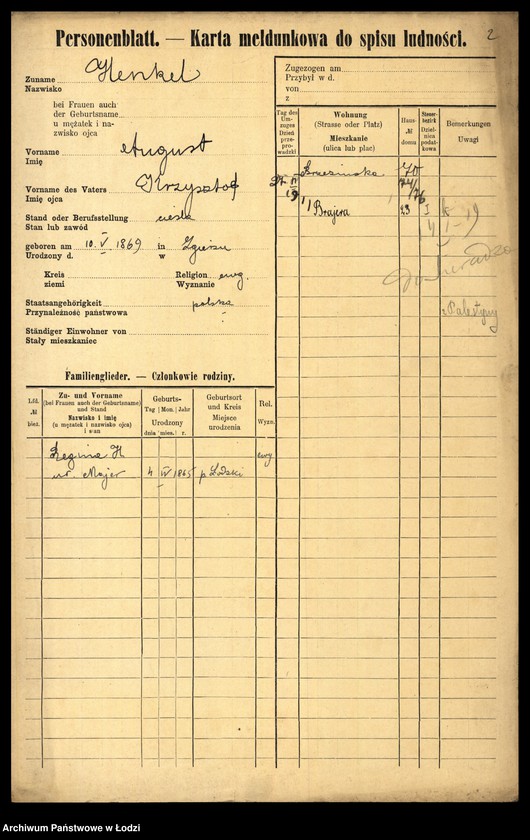 Personenblatt. — Karta meldunkowa do spisu ludności.
2
Zuname Henkel
Nazwisko
bei Frauen auch
der Geburtsname
u mężatek i na-
zwisko ojca
Vorname August
Imię
Vorname des Vaters Krzysztof
Imię ojca
Stand oder Berufsstellung cieśla
Stan lub zawód
geboren am 10. V 1869 in Zgierzu
Urodzony d. w
Kreis Religion ewg.
ziemi Wyznanie
Staatsangehörigkeit polska
Przynależność państwowa
Ständiger Einwohner von
Stały mieszkaniec
Zugezogen am
Przybył w d.
von
z
Tag des Um-zuges Dzień prze-prowadzki
Wohnung
(Strasse oder Platz)
Mieszkanie
(ulica lub plac)
Haus- № domu
Steuer-bezirk Dziel-nica podat-kowa
Bemerkungen
Uwagi
Brzezińska 70
74/76
11 Brajera 23
Palestyny
Familienglieder. — Członkowie rodziny.
Lfd. № bież.
Zu- und Vorname
(bei Frauen auch der Geburtsname)
und Stand
Nazwisko i imię
(u mężatek i nazwisko ojca)
i stan
Geburts-
Tag Mon. Jahr
Urodzony
dnia mies. r.
Geburtsort
und Kreis
Miejsce
urodzenia
Rel.
Wyzn.
Regina H.
ur. Majer 4 IV 1865 p Łodzki ewg
Archiwum Państwowe w Łodzi